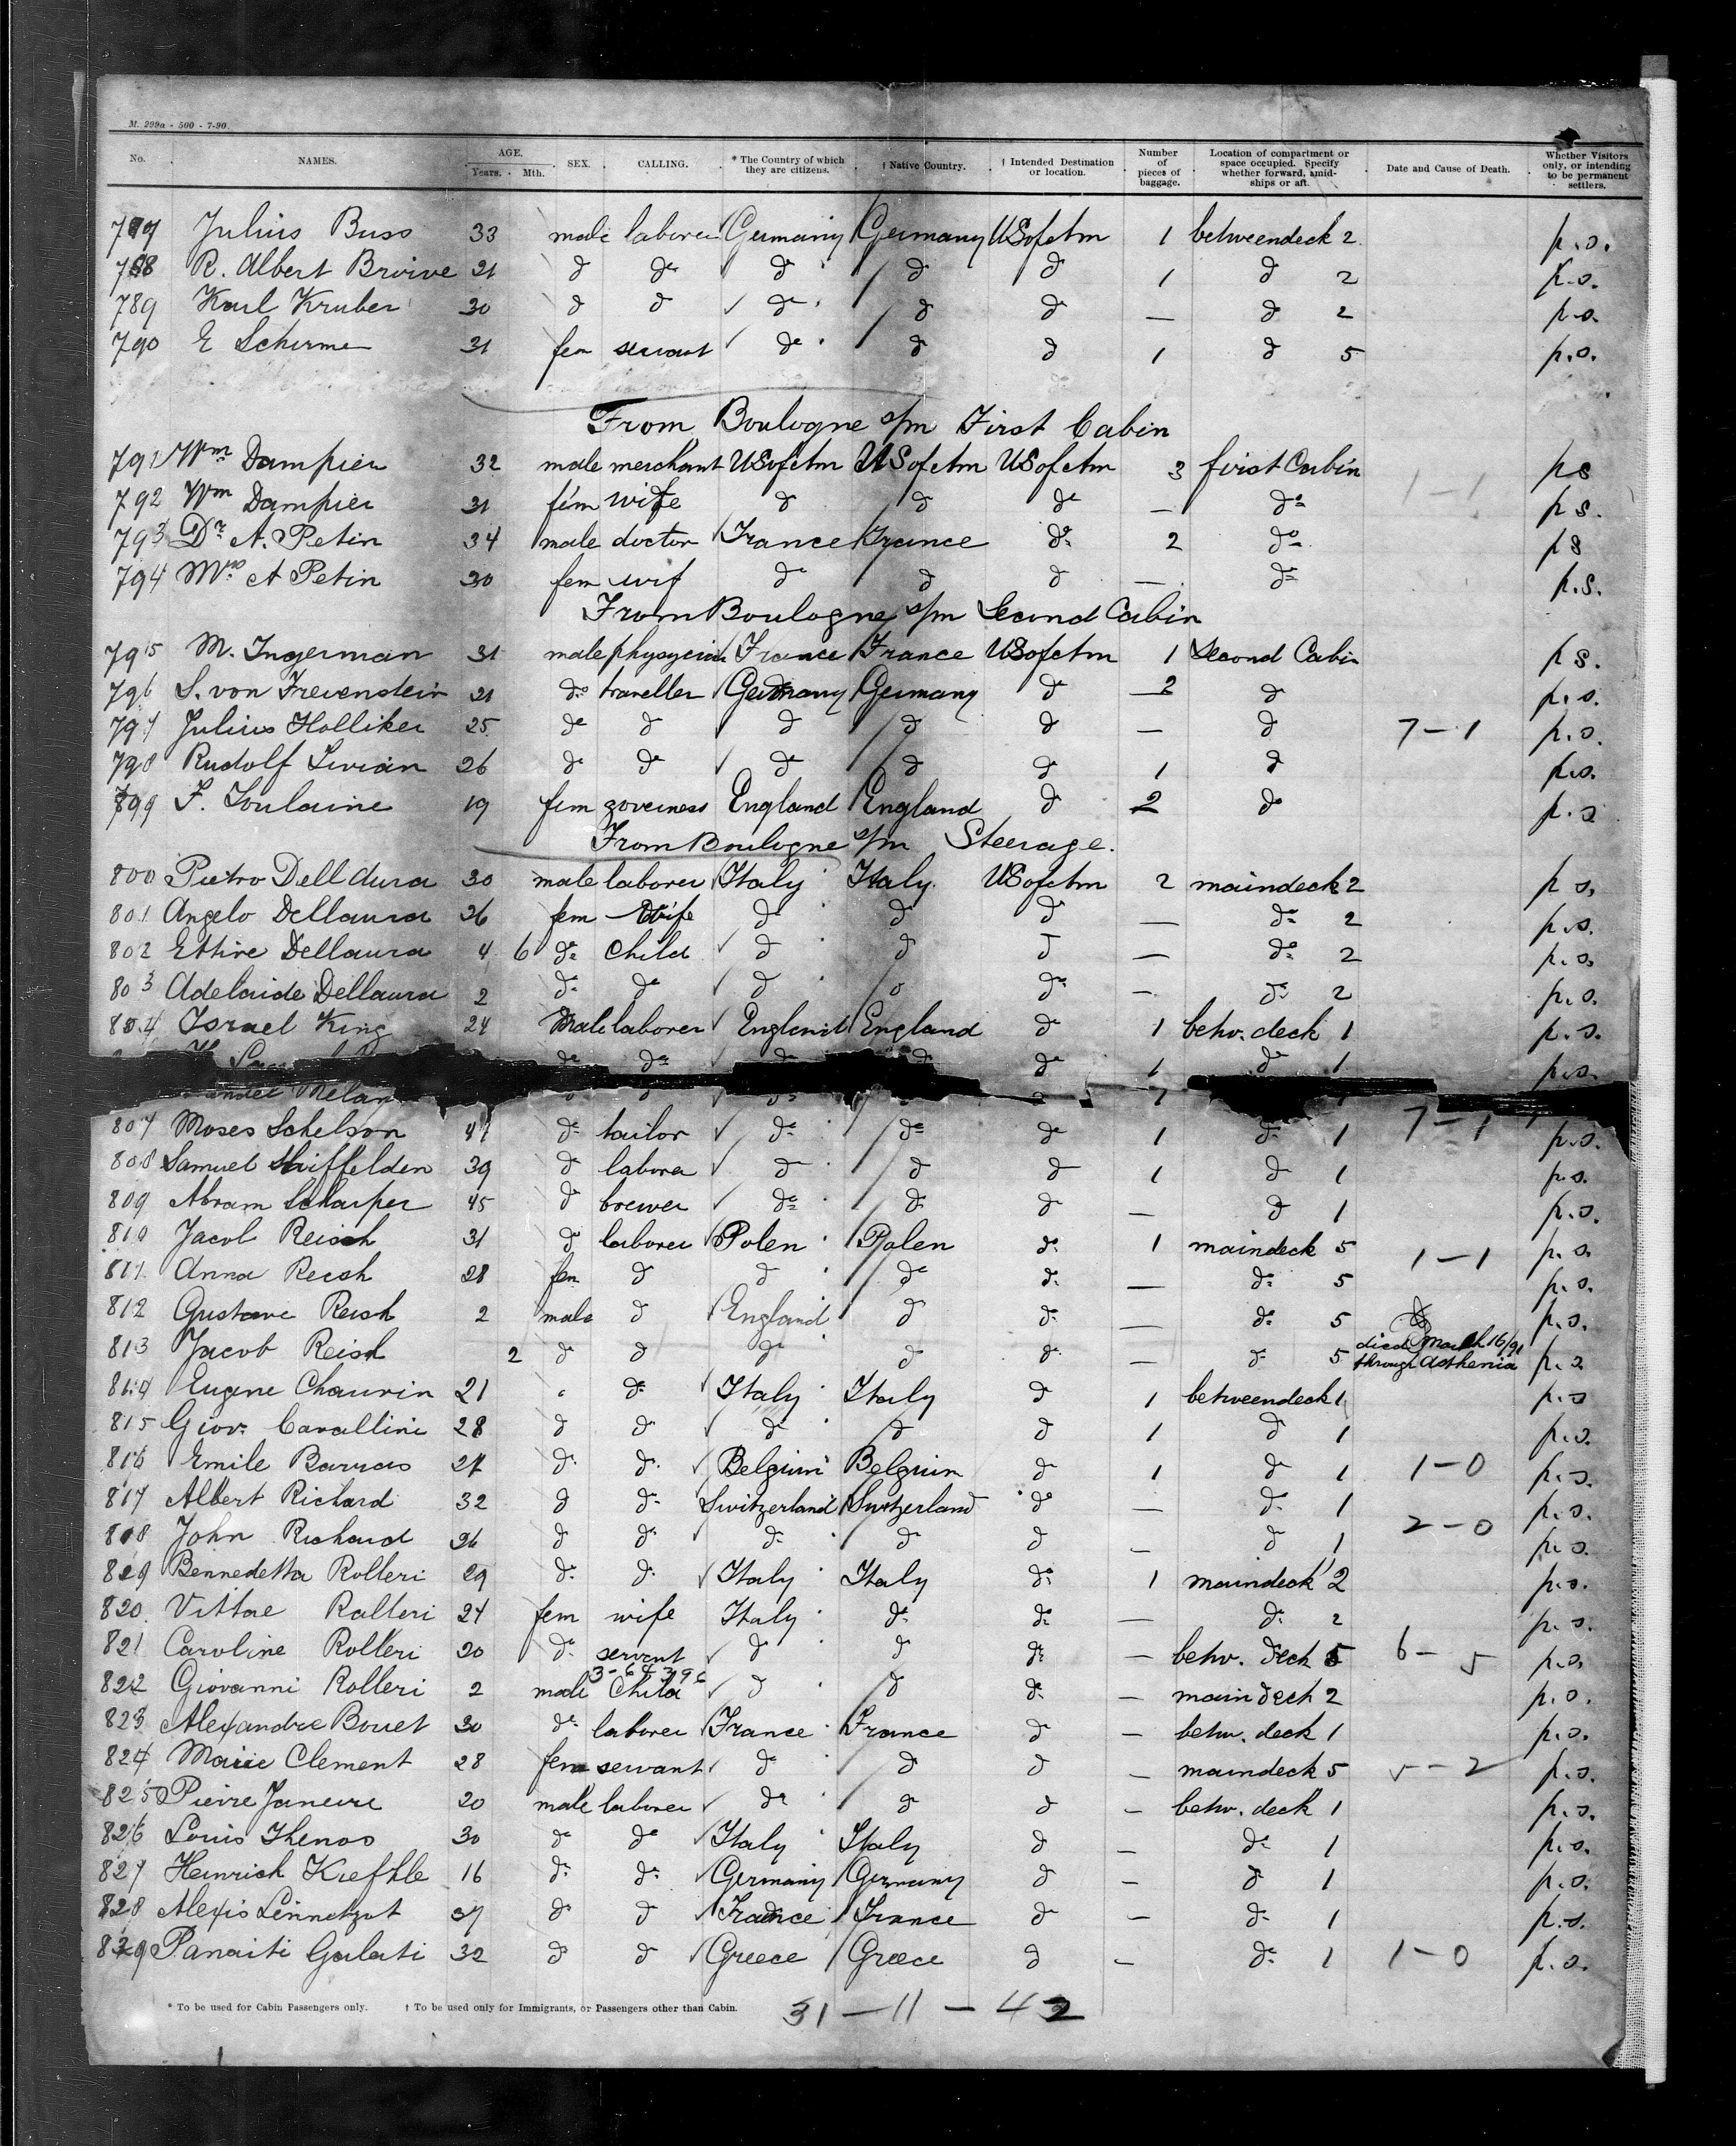 M. 299a - 500 - 7-90.
No. NAMES. AGE. Years. Mth. SEX. CALLING. * The Country of which they are citizens. † Native Country. † Intended Destination or location. Number of pieces of baggage. Location of compartment or space occupied. Specify whether forward, amidships or aft. Date and Cause of Death. Whether Visitors only, or intending to be permanent settlers.
Julius Buss 33 male laborer Germany Germany USofAm 1 betweendeck 2 p.s.
788 R. Albert 21 d do d d d 1 d 2 p.s.
789 Karl Kruber 30 d d do d d — d 2 p.s.
790 E Schirme 31 fem servant do d d 1 d 5 p.s.
From Boulogne s/m First Cabin
791 Wm Dampier 32 male merchant USofAm USofAm USofAm 3 first Cabin 1-1 ps
792 Wm Dampier 31 fem wife d d do — do ps.
793 Dr A. Petin 34 male doctor France France do 2 do ps
794 Mrs A Petin 30 fem wif do d d — do p.s.
From Boulogne s/m Second Cabin
795 M. Ingerman 31 male physycian France France USofAm 1 Second Cabin ps.
796 S. von Freienstein 21 do traveller Germany Germany d 2 d p.s.
797 Julius Holliker 25 do d d d d — d 7-1 p.s.
798 Rudolf Livian 26 do do do d d 1 d p.s.
799 F. Toulaine 19 fem governess England England d 2 do p.s
From Boulogne s/m Steerage.
800 Pietro Dell aura 30 male laborer Italy Italy USofAm 2 maindeck 2 p s.
801 Angelo Dellaura 26 fem wife d d d — do 2 p.s.
802 Ettire Dellaura 4 6 do child d d d — do 2 p.s.
803 Adelaide Dellaura 2 do do d d do — do 2 p.s.
804 Israel King 24 male laborer England England d 1 betw. deck 1 p.s.
do do do do do 1 d 1 p.s.
807 Moses Schelson 47 do tailor do do do 1 do 1 7-1 p.s.
808 Samuel Shiffelden 39 d labora d d d 1 d 1 p.s.
809 Abram Scharper 45 d brewer do do d — d 1 p.s.
810 Jacob Reisch 31 d laborer Polen Polen do 1 maindeck 5 1-1 p.s.
811 Anna Reish 28 fem d d do do — do 5 p.s.
812 Gustave Reish 2 male d England d do — do 5 p.s.
813 Jacob Reish 2 d d do d d — d 5 died March 16/91 through Asthenia p.s
814 Eugene Chauvin 21 do Italy Italy d 1 betweendeck 1 p.s
815 Giov. Cavallini 28 d do do d d 1 d 1 p.s.
816 Emile Barras 27 do do Belgium Belgium d 1 d 1 1-0 p.s.
817 Albert Richard 32 d do Switzerland Switzerland do — do 1 p.s.
818 John Richard 26 d do do d d — d 1 2-0 p.s.
819 Bennedetta Rolleri 29 do do Italy Italy do 1 maindeck 2 p.s.
820 Vittae Rolleri 24 fem wife Italy do do — do 2 p.s.
821 Caroline Rolleri 20 do servent d d do — betw. deck 5 6-5 p.s.
3-64396
822 Giovanni Rolleri 2 male Child d d do — main deck 2 p.s.
823 Alexandre Bouet 30 do laborer France France d — betw. deck 1 p.s.
824 Marie Clement 28 fem servant d d d — maindeck 5 5-2 p.s.
825 Pierre 20 male laborer do d d — betw. deck 1 p.s.
826 Louis Thenos 30 do do Italy Italy d — do 1 p.s.
827 Heinrich Kiefhle 16 do do Germany Germany d — d 1 p.s.
828 Alexis 37 do d France France d — do 1 p.s.
829 Panaiti Galati 32 d d Greece Greece d — do 1 1-0 p.s.
* To be used for Cabin Passengers only. † To be used only for Immigrants, or Passengers other than Cabin.
31 - 11 - 42